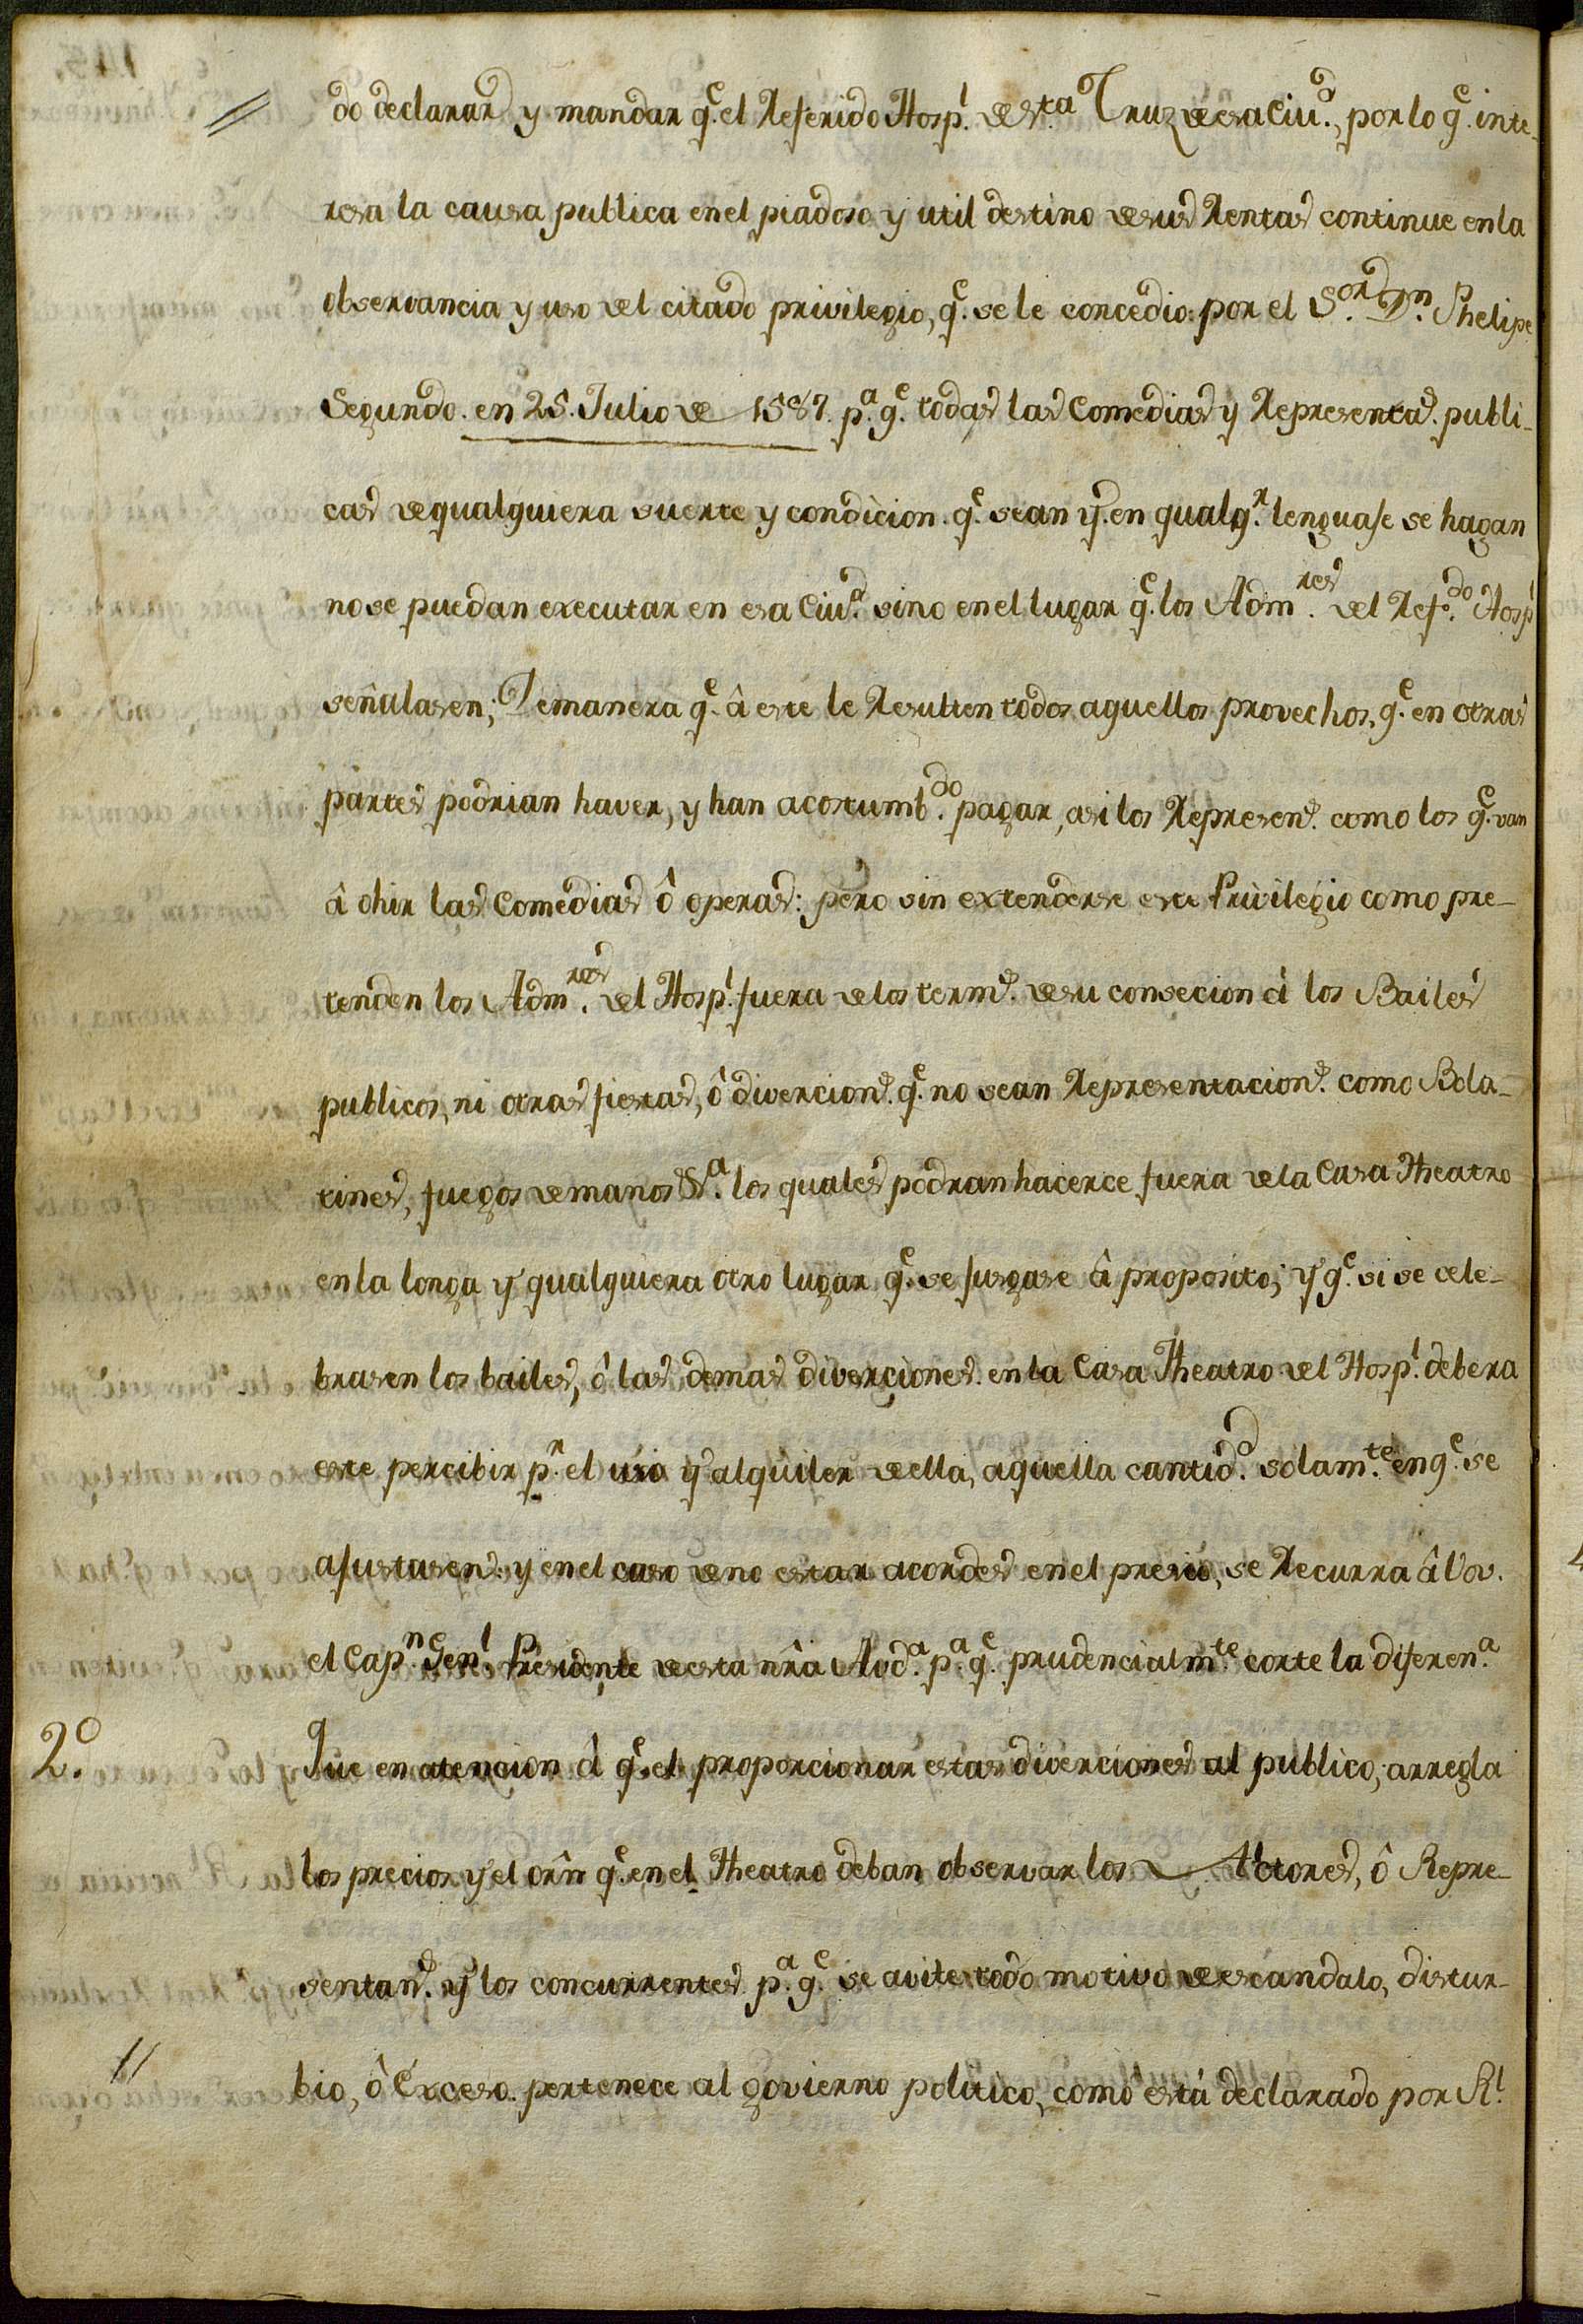 do declarar y mandar q.e el Referido Hosp.l de S.ta Cruz de esa Ciu.d, por lo q.e inte-
resa la causa publica en el piadoso y util destino de sus Rentas continue en la
observancia y uso del citado privilegio, q.e se le concedio por el S.or D.n Phelipe
Segundo. en 25. Julio de 1587. p.a q.e todas las Comedias y Representa.s publi-
cas de qualquiera suerte y condicion. q.e sean y en qualq.r lenguaje se hagan
no se puedan executar en esa Ciu.d sino en el lugar q.e los Adm.res del Ref.do Hosp.l
señalasen; De manera q.e â este le Resulten todos aquellos provechos, q.e en otras
partes podrian haver, y han acostumb.do pagar, asi los Represen.s como los q.e van
â ohir las Comedias ô operas: pero sin extenderse este Privilegio como pre-
tenden los Adm.res del Hosp.l fuera de los term.s de su consecion â los Bailes
publicos, ni otras fiestas, ô divercion.s q.e no sean Representacion.s como Bola-
tines, juegos de manos &.a los quales podran hacerce fuera de la Casa Theatro
en la longa y qualquiera otro lugar q.e se jusgase â proposito; y q.e si se cele-
brasen los bailes, ô las demas diverciones en la Casa Theatro del Hosp.l debera
este percibir p.r el uso y alquiler de ella, aquella cantid.d solam.te en q.e se
ajustasen: y en el caso de no estar acordes en el presio, se Recurra â Vos.
el Cap.n Gen.l Presidente de esta nr̂a Aud.a p.a q.e prudencialm.te corte la diferen.a
2.o Que en atencion â q.e el proporcionar estas diverciones al publico, arregla
los precios y el orn̂ q.e en el Theatro deban observar los Actores, ô Repre-
sentan.s y los concurrentes p.a q.e se avite todo motivo de escandalo, distur-
bio, ô Exceso. pertenece al govierno politico, como está declarado por R.l